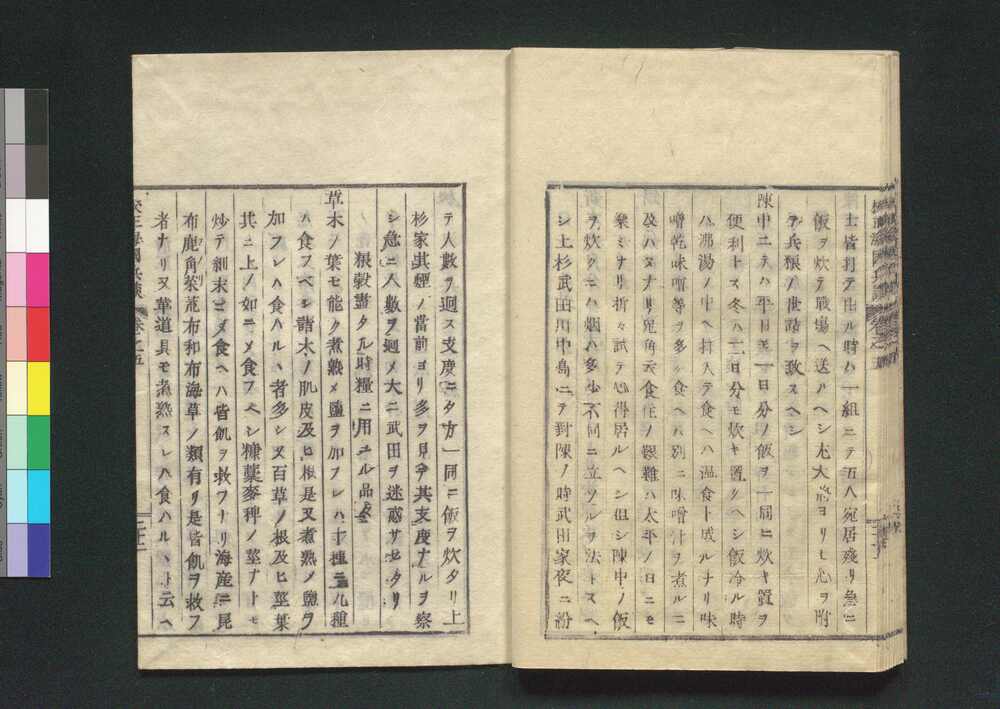 士皆打テ出ル時ハ一組ニテ五人宛居殘リ急ニ
飯ヲ炊テ戰塲ヘ送ルヘシ尤大將ヨリモ心ヲ附
テ兵粮ノ世話ヲ致スヘシ
陳中ニテハ平日モ一日分ノ飯ヲ一同ニ炊キ置ヲ
便利トス冬ハ二日分モ炊キ置クヘシ飯冷ル時
ハ沸湯ノ中ヘ打入テ食ヘハ温食ト成ルナリ味
噌乾味噌等ヲ多ク食ヘハ別ニ味噌汁ヲ煮ルニ
及ハヌナリ鬼角衣食住ノ艱難ハ太平ノ日ニモ
樂ミナリ折々試テ心得居ルヘシ但シ陳中ノ飯
ヲ炊クニハ烟ハ多少不同ニ立ツルヲ法トスヘ
シ上杉武田川中島ニテ對陳ノ時武田家夜ニ汾
テ人數ヲ廻ス支度ニタ方一同ニ飯ヲ炊タリ上
杉家其煙ノ當前ヨリ多ヲ見テ其支度ナルヲ察
シ急ニ人數ヲ廻メ大ニ武田ヲ迷惑サセタリ
粮穀盡タル時糧ニ用ユル品々
草木ノ葉モ能ク煮熟メ鹽ヲ加フレハ十種ニ九種
ハ食フヘシ諸木ノ肌皮及ヒ根是又煮熟メ鹽ヲ
加フレハ食ハルヽ者多シ又百草ノ根及ヒ莖葉
共ニ上ノ如ニメ食フヘシ糠藁麥稗ノ莖ナトモ
炒テ細末ニメ食ヘハ皆飢ヲ救フナリ海産ニ昆
布鹿角菜荒布和布海草ノ類有リ是皆飢ヲ救フ
者ナリ又華道具モ煮熟スレハ食ハルヽト云ヘ